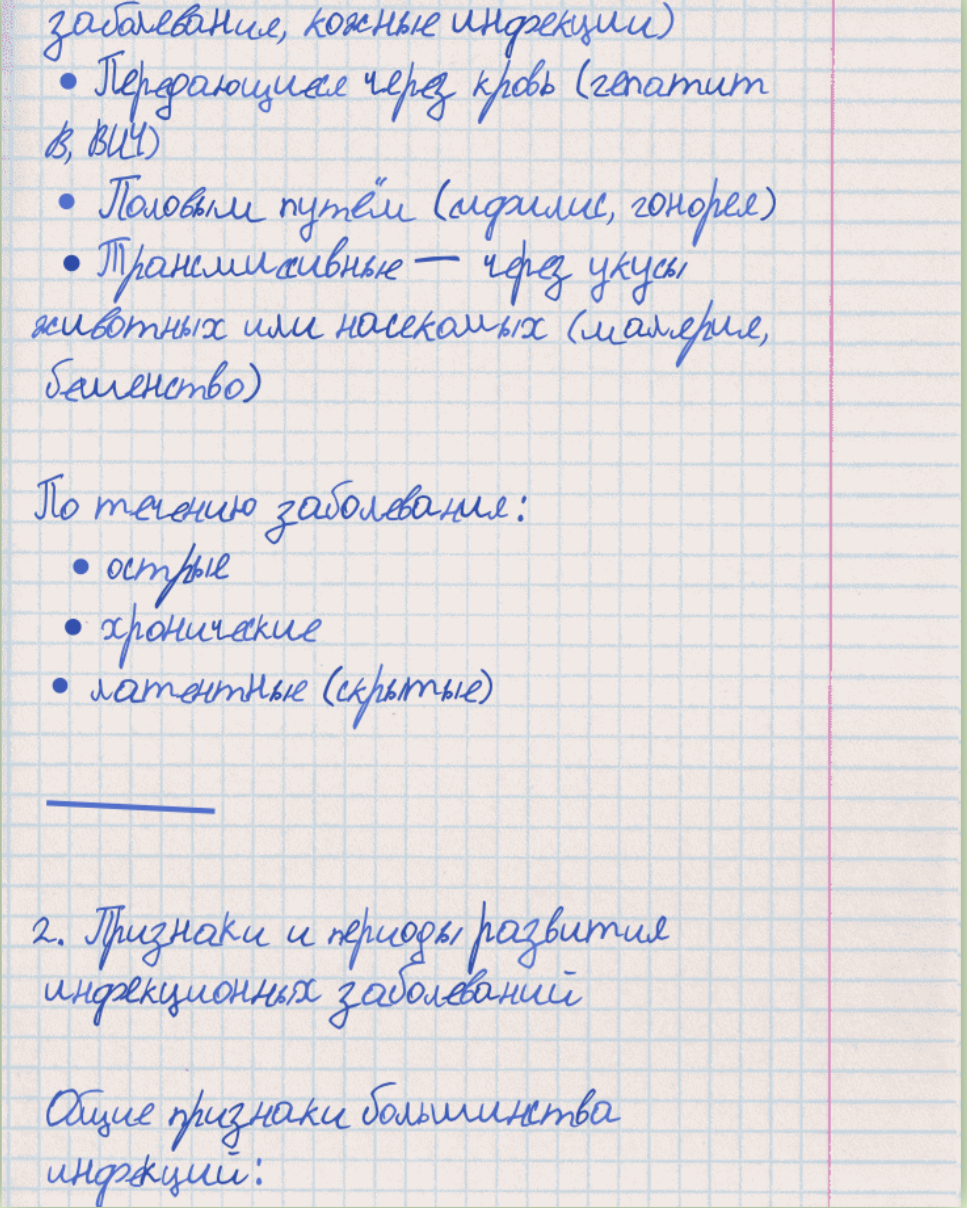 заболевания, кожные инфекции)
• Передающиеся через кровь (гепатит
В, ВИЧ)
• Половым путём (сифилис, гонорея)
• Трансмиссивные — через укусы
животных или насекомых (малярия,
бешенство)
По течению заболевания:
• острые
• хронические
• латентные (скрытые)
2. Признаки и периоды развития
инфекционных заболеваний
Общие признаки большинства
инфекций: